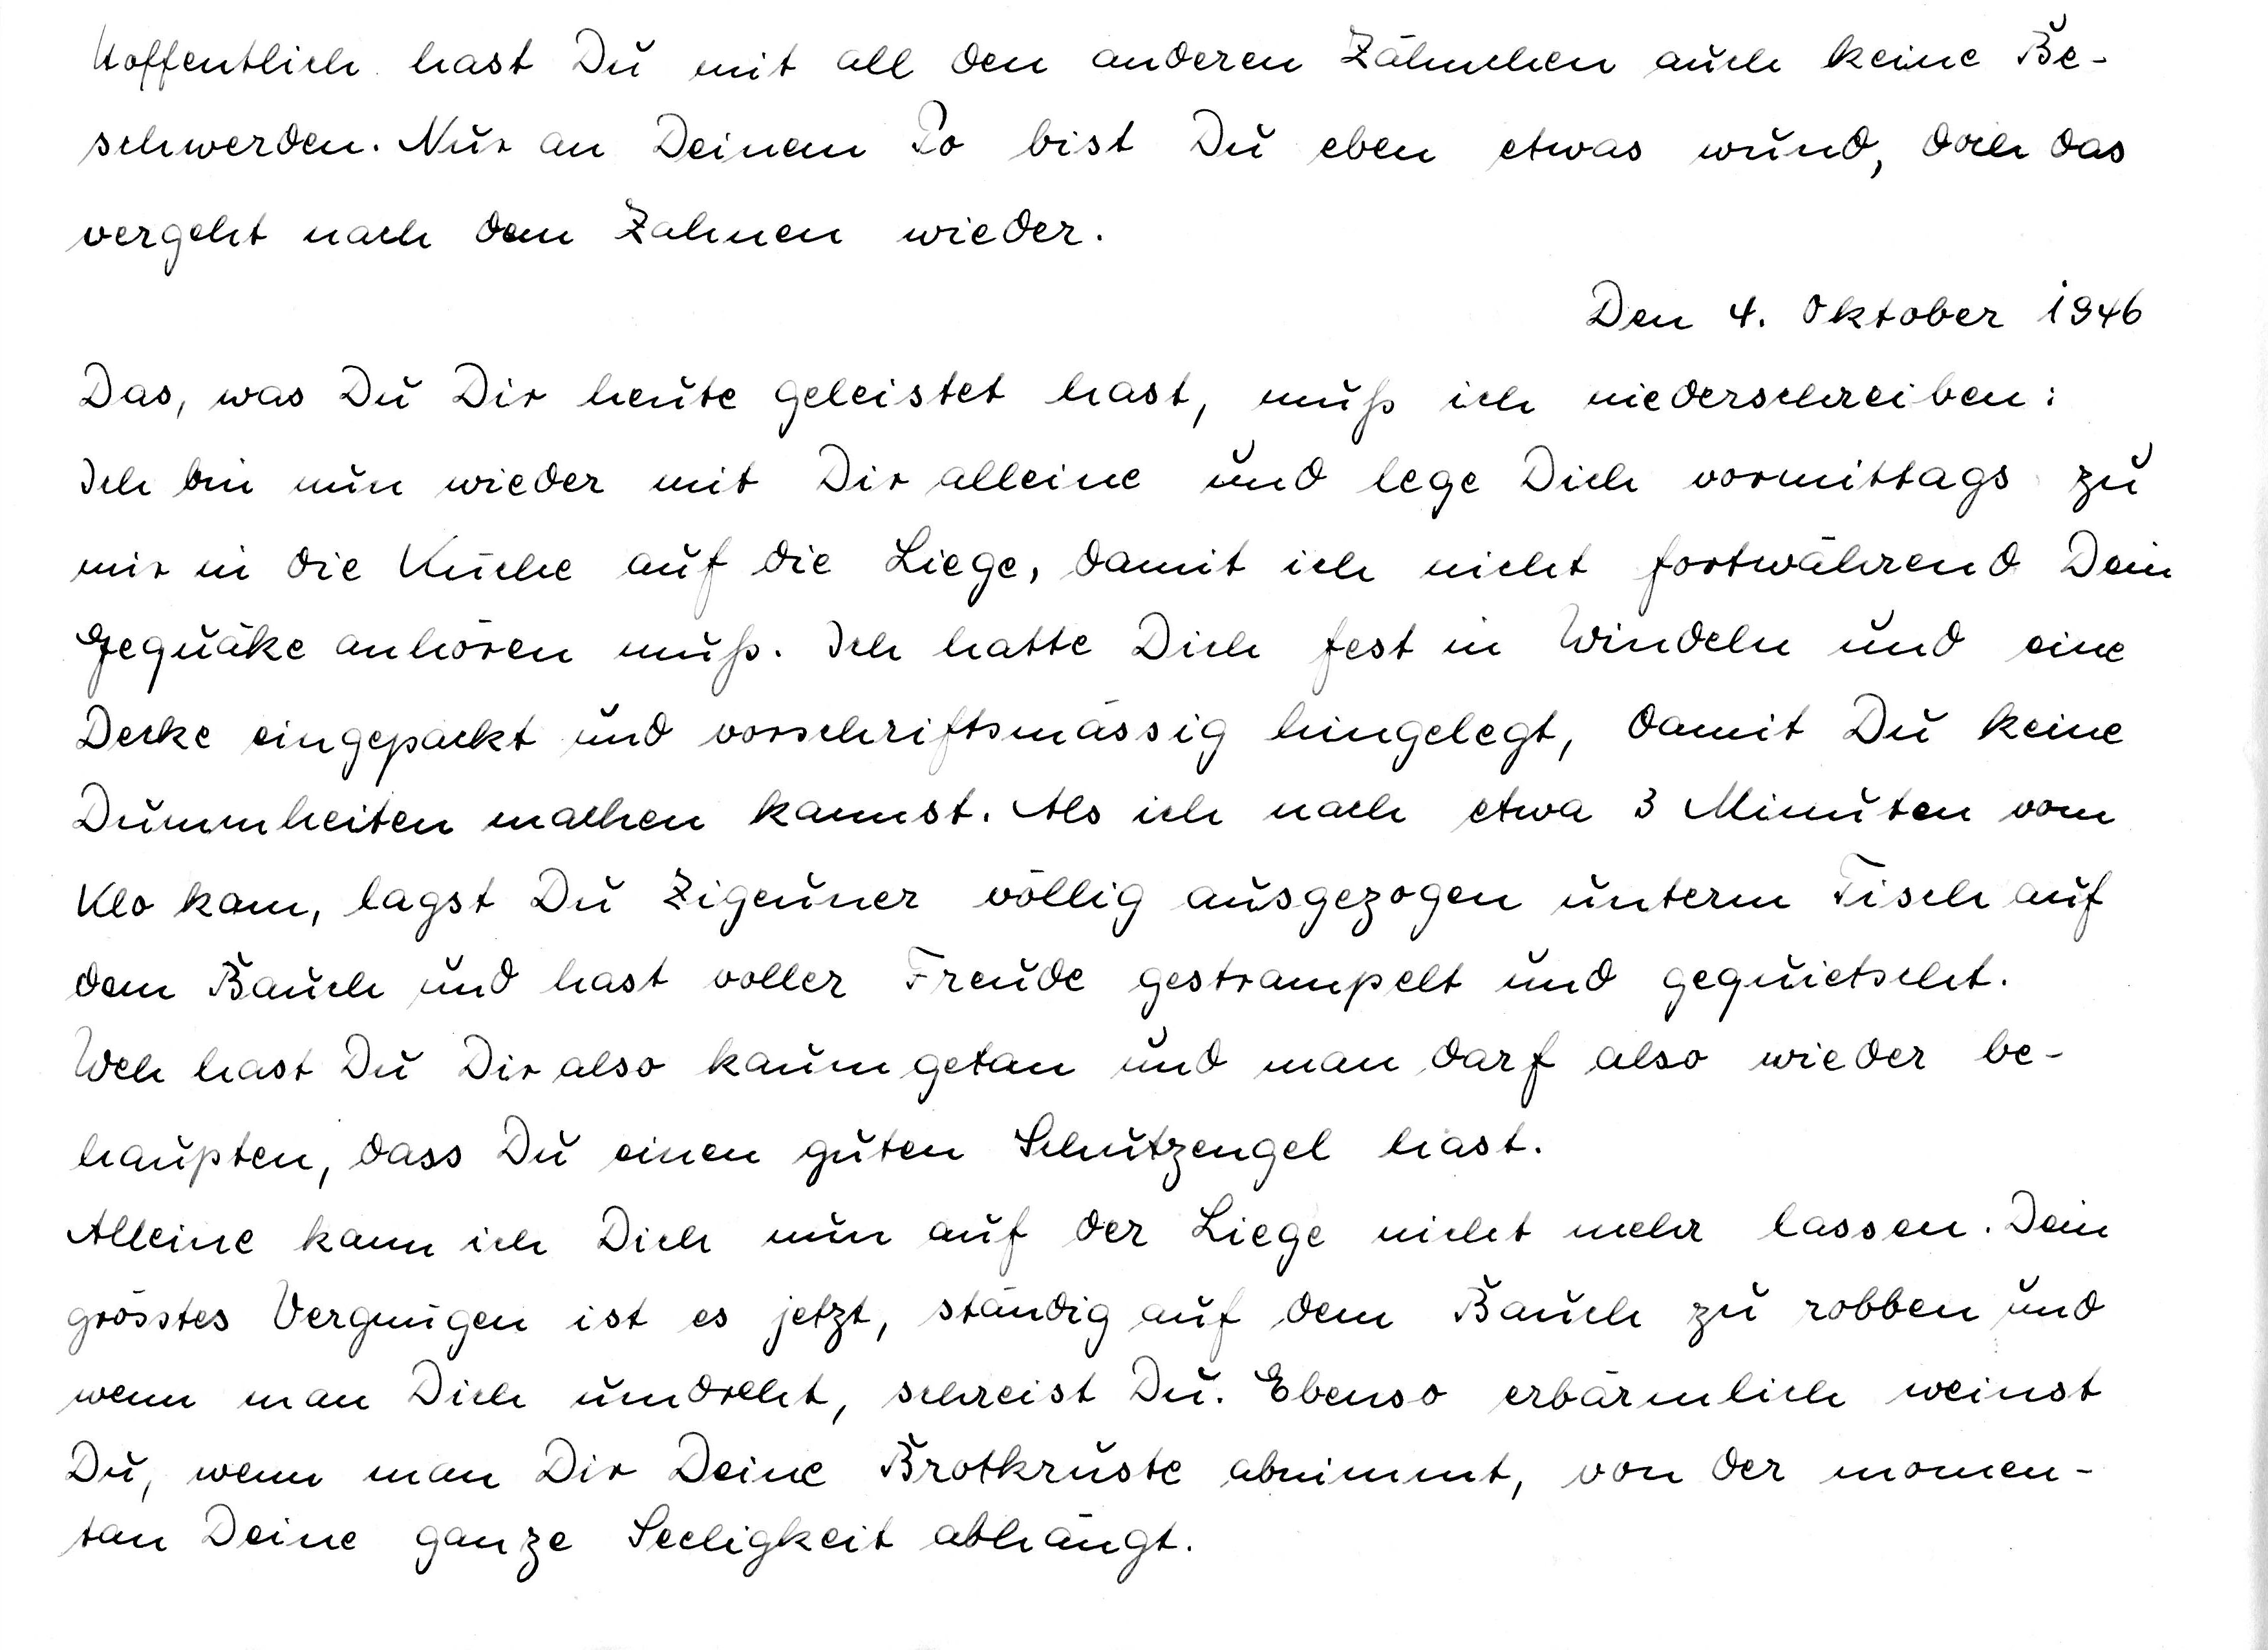 Hoffentlich hast Du mit all den anderen Zähnchen auch keine Be-
schwerden. Nur an Deinem Po bist Du eben etwas wund, doch das
vergeht nach dem Zahnen wieder.
Den 4. Oktober 1946
Das, was Du Dir heute geleistet hast, muß ich niederschreiben:
Ich bin nun wieder mit Dir alleine und lege Dich vormittags zu
mir in die Küche auf die Liege, damit ich nicht fortwährend Dein
Gequäke anhören muß. Ich hatte Dich fest in Windeln und eine
Decke eingepackt und vorschriftsmässig hingelegt, damit Du keine
Dummheiten machen kannst. Als ich nach etwa 3 Minuten vom
Klo kam, lagst Du Zigeuner völlig ausgezogen unterm Tisch auf
dem Bauch und hast voller Freude gestrampelt und gequietscht.
Weh hast Du Dir also kaum getan und man darf also wieder be-
haupten, dass Du einen guten Schutzengel hast.
Alleine kann ich Dich nun auf der Liege nicht mehr lassen. Dein
grösstes Vergnügen ist es jetzt, ständig auf dem Bauch zu robben und
wenn man Dich umdreht, schreist Du. Ebenso erbärmlich weinst
Du, wenn man Dir Deine Brotkruste abnimmt, von der momen-
tan Deine ganze Seeligkeit abhängt.